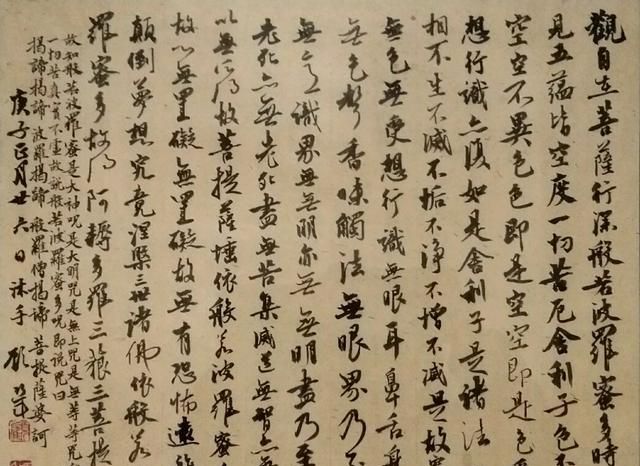 觀自在菩薩行深般若波羅蜜多時
見五蘊皆空度一切苦厄舍利子色不
空空不異色色即是空空即是色
想行識亦復如是舍利子是諸法
相不生不滅不垢不淨不增不減是故
無色無受想行識無眼耳鼻舌身
無色聲香味觸法無眼界乃至
無意識界無無明亦無無明盡乃至
老死亦無老死盡無苦集滅道無智亦無
以無所得故菩提薩埵依般若波羅蜜
故心無罣礙無罣礙故無有恐怖遠離
顛倒夢想究竟涅槃三世諸佛依般若
羅蜜多故得阿耨多羅三藐三菩提
故知般若波羅蜜是大神咒是大明咒是無上咒是無等等咒
一切苦真實不虛故說般若波羅蜜多咒即說咒曰
揭諦揭諦 波羅揭諦 般羅僧揭諦 菩提薩婆訶
庚子正月廿六日沐手